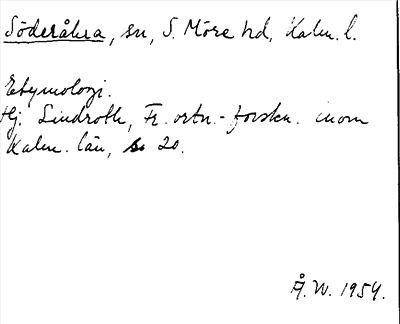 Söderåkra, sn, S. Möre hd, Kalm. l.
Etymologi.
Hj. Lindroth, Fr. ortn.-forskn. inom
Kalm. län, s. 20.
Å. W. 1954.